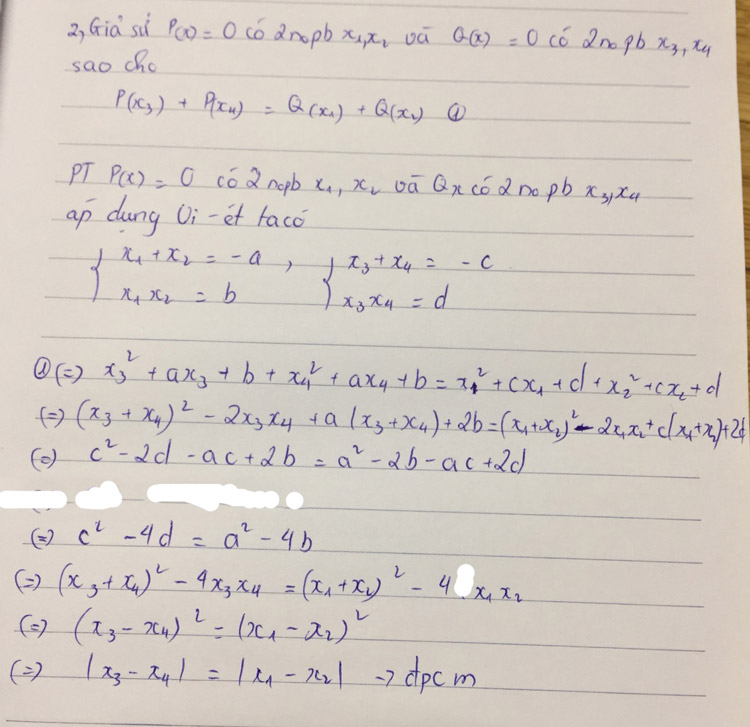 2, Giả sử P(x) = 0 có 2 nopb x₁,x₂ và Q(x) = 0 có 2 no pb x₃, x₄
sao cho
P(x₃) + P(x₄) = Q(x₁) + Q(x₂) ①
PT P(x) = 0 có 2 nopb x₁, x₂ và Qx có 2 no pb x₃,x₄
áp dụng Vi-ét ta có
{ x₁ + x₂ = -a , { x₃ + x₄ = -c
x₁ x₂ = b x₃x₄ = d
① (=) x₃² + ax₃ + b + x₄² + ax₄ + b = x₁² + cx₁ + d + x₂² + cx₂ + d
(=) (x₃ + x₄)² - 2x₃x₄ + a(x₃+x₄) + 2b = (x₁+x₂)² - 2x₁x₂ + c(x₁+x₂) + 2d
(=) c² - 2d - ac + 2b = a² - 2b - ac + 2d
(=) c² - 4d = a² - 4b
(=) (x₃ + x₄)² - 4x₃x₄ = (x₁+x₂)² - 4 x₁x₂
(=) (x₃ - x₄)² = (x₁ - x₂)²
(=) |x₃ - x₄| = |x₁ - x₂| → đpcm